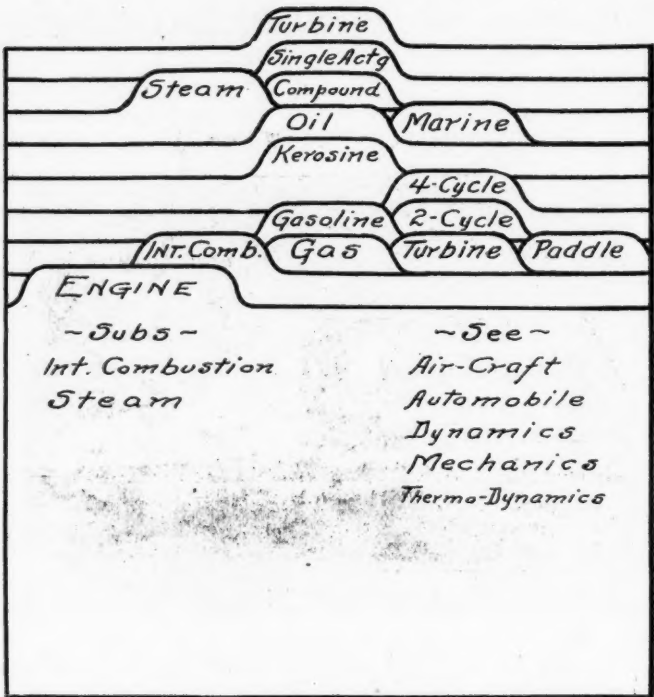 Turbine
Single Actg
Steam Compound
Oil Marine
Kerosine
4-Cycle
Gasoline 2-Cycle
INT. Comb. Gas Turbine Paddle
ENGINE
~Subs~ ~See~
Int. Combustion Air-Craft
Steam Automobile
Dynamics
Mechanics
Thermo-Dynamics